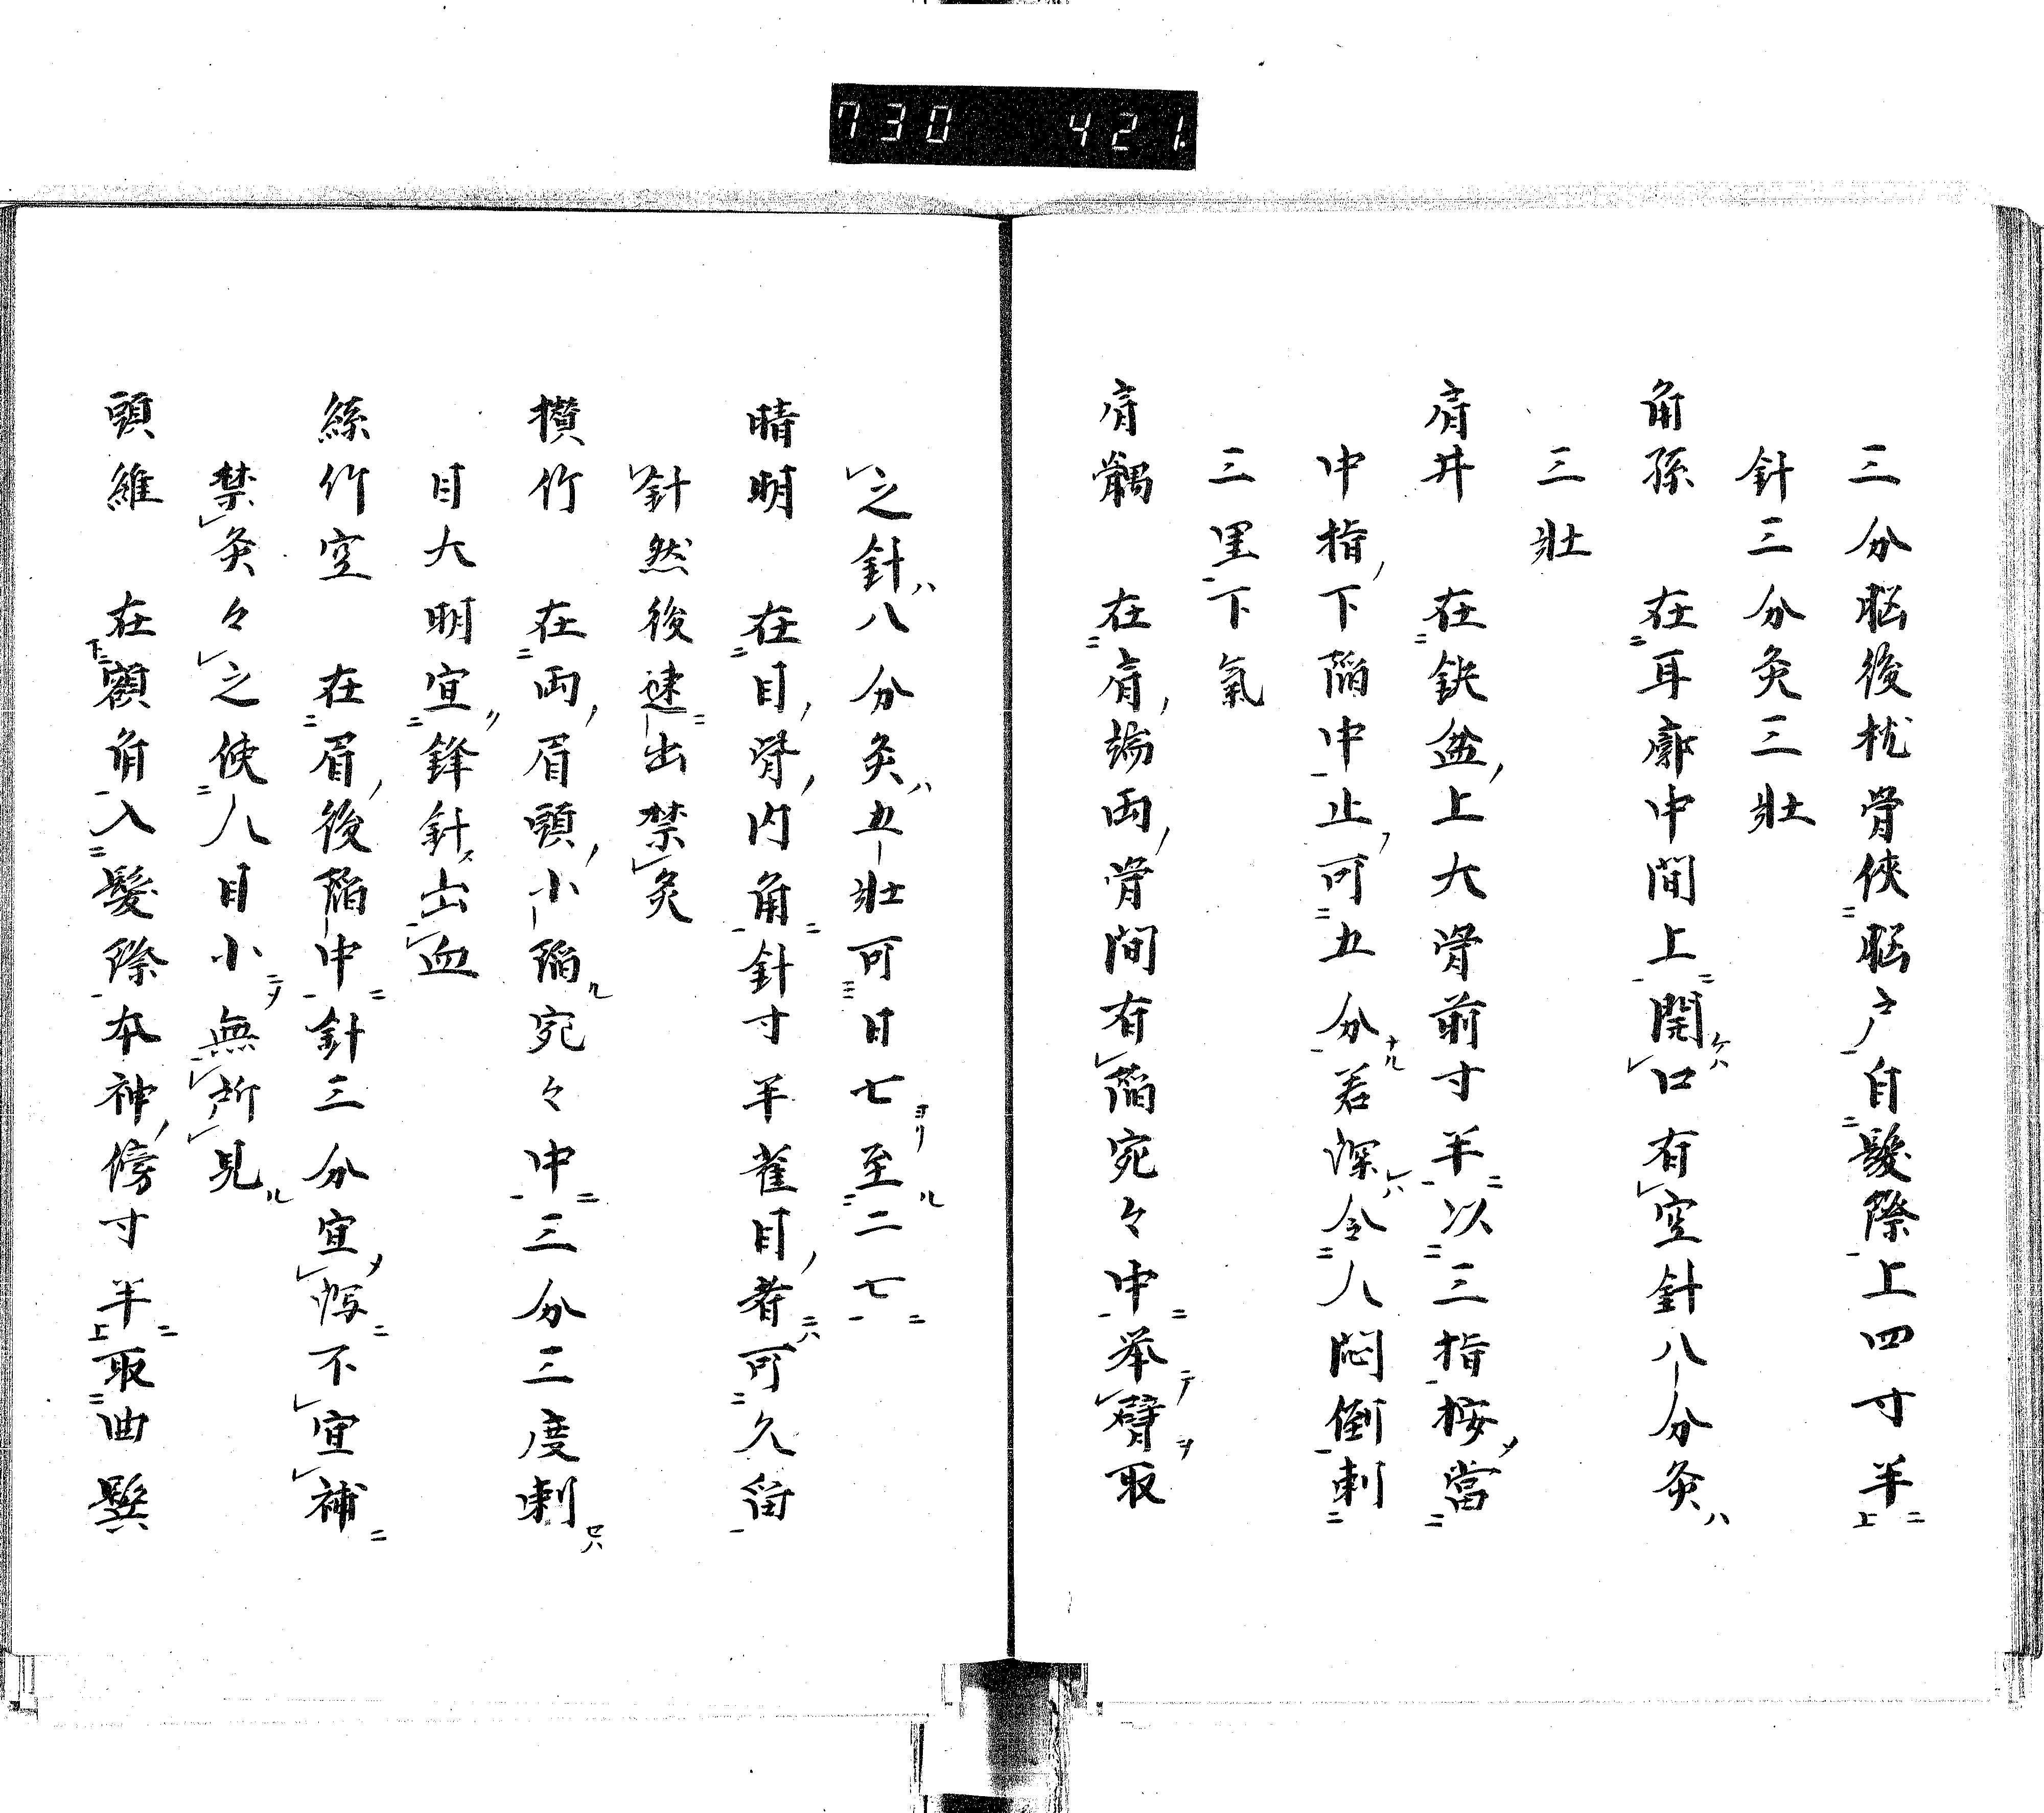 730 421
三分脳後枕骨侠脳户自髮際上四寸半
針三分灸三壮
角孫 在耳廓中間上開口有空針八分灸
三壮
肩井 在鈌盆上大骨前寸半以三指按當
中指下䧟中止可五分若深令人悶倒刺
三里下氣
肩髃 在肩端両骨間有䧟宛々中举臂取
之針八分灸五壮可日七至二七
睛明 在目眥内角針寸半雀目者可久留
針然後速出禁灸
攅竹 在両眉頭小䧟宛々中三分三度刺
目大明宜鋒針出血
絲竹空 在眉後䧟中針三分宜㵼不宜補
禁灸々之使人目小無所見
頭維 在額角入髮際本神傍寸半取曲鬢